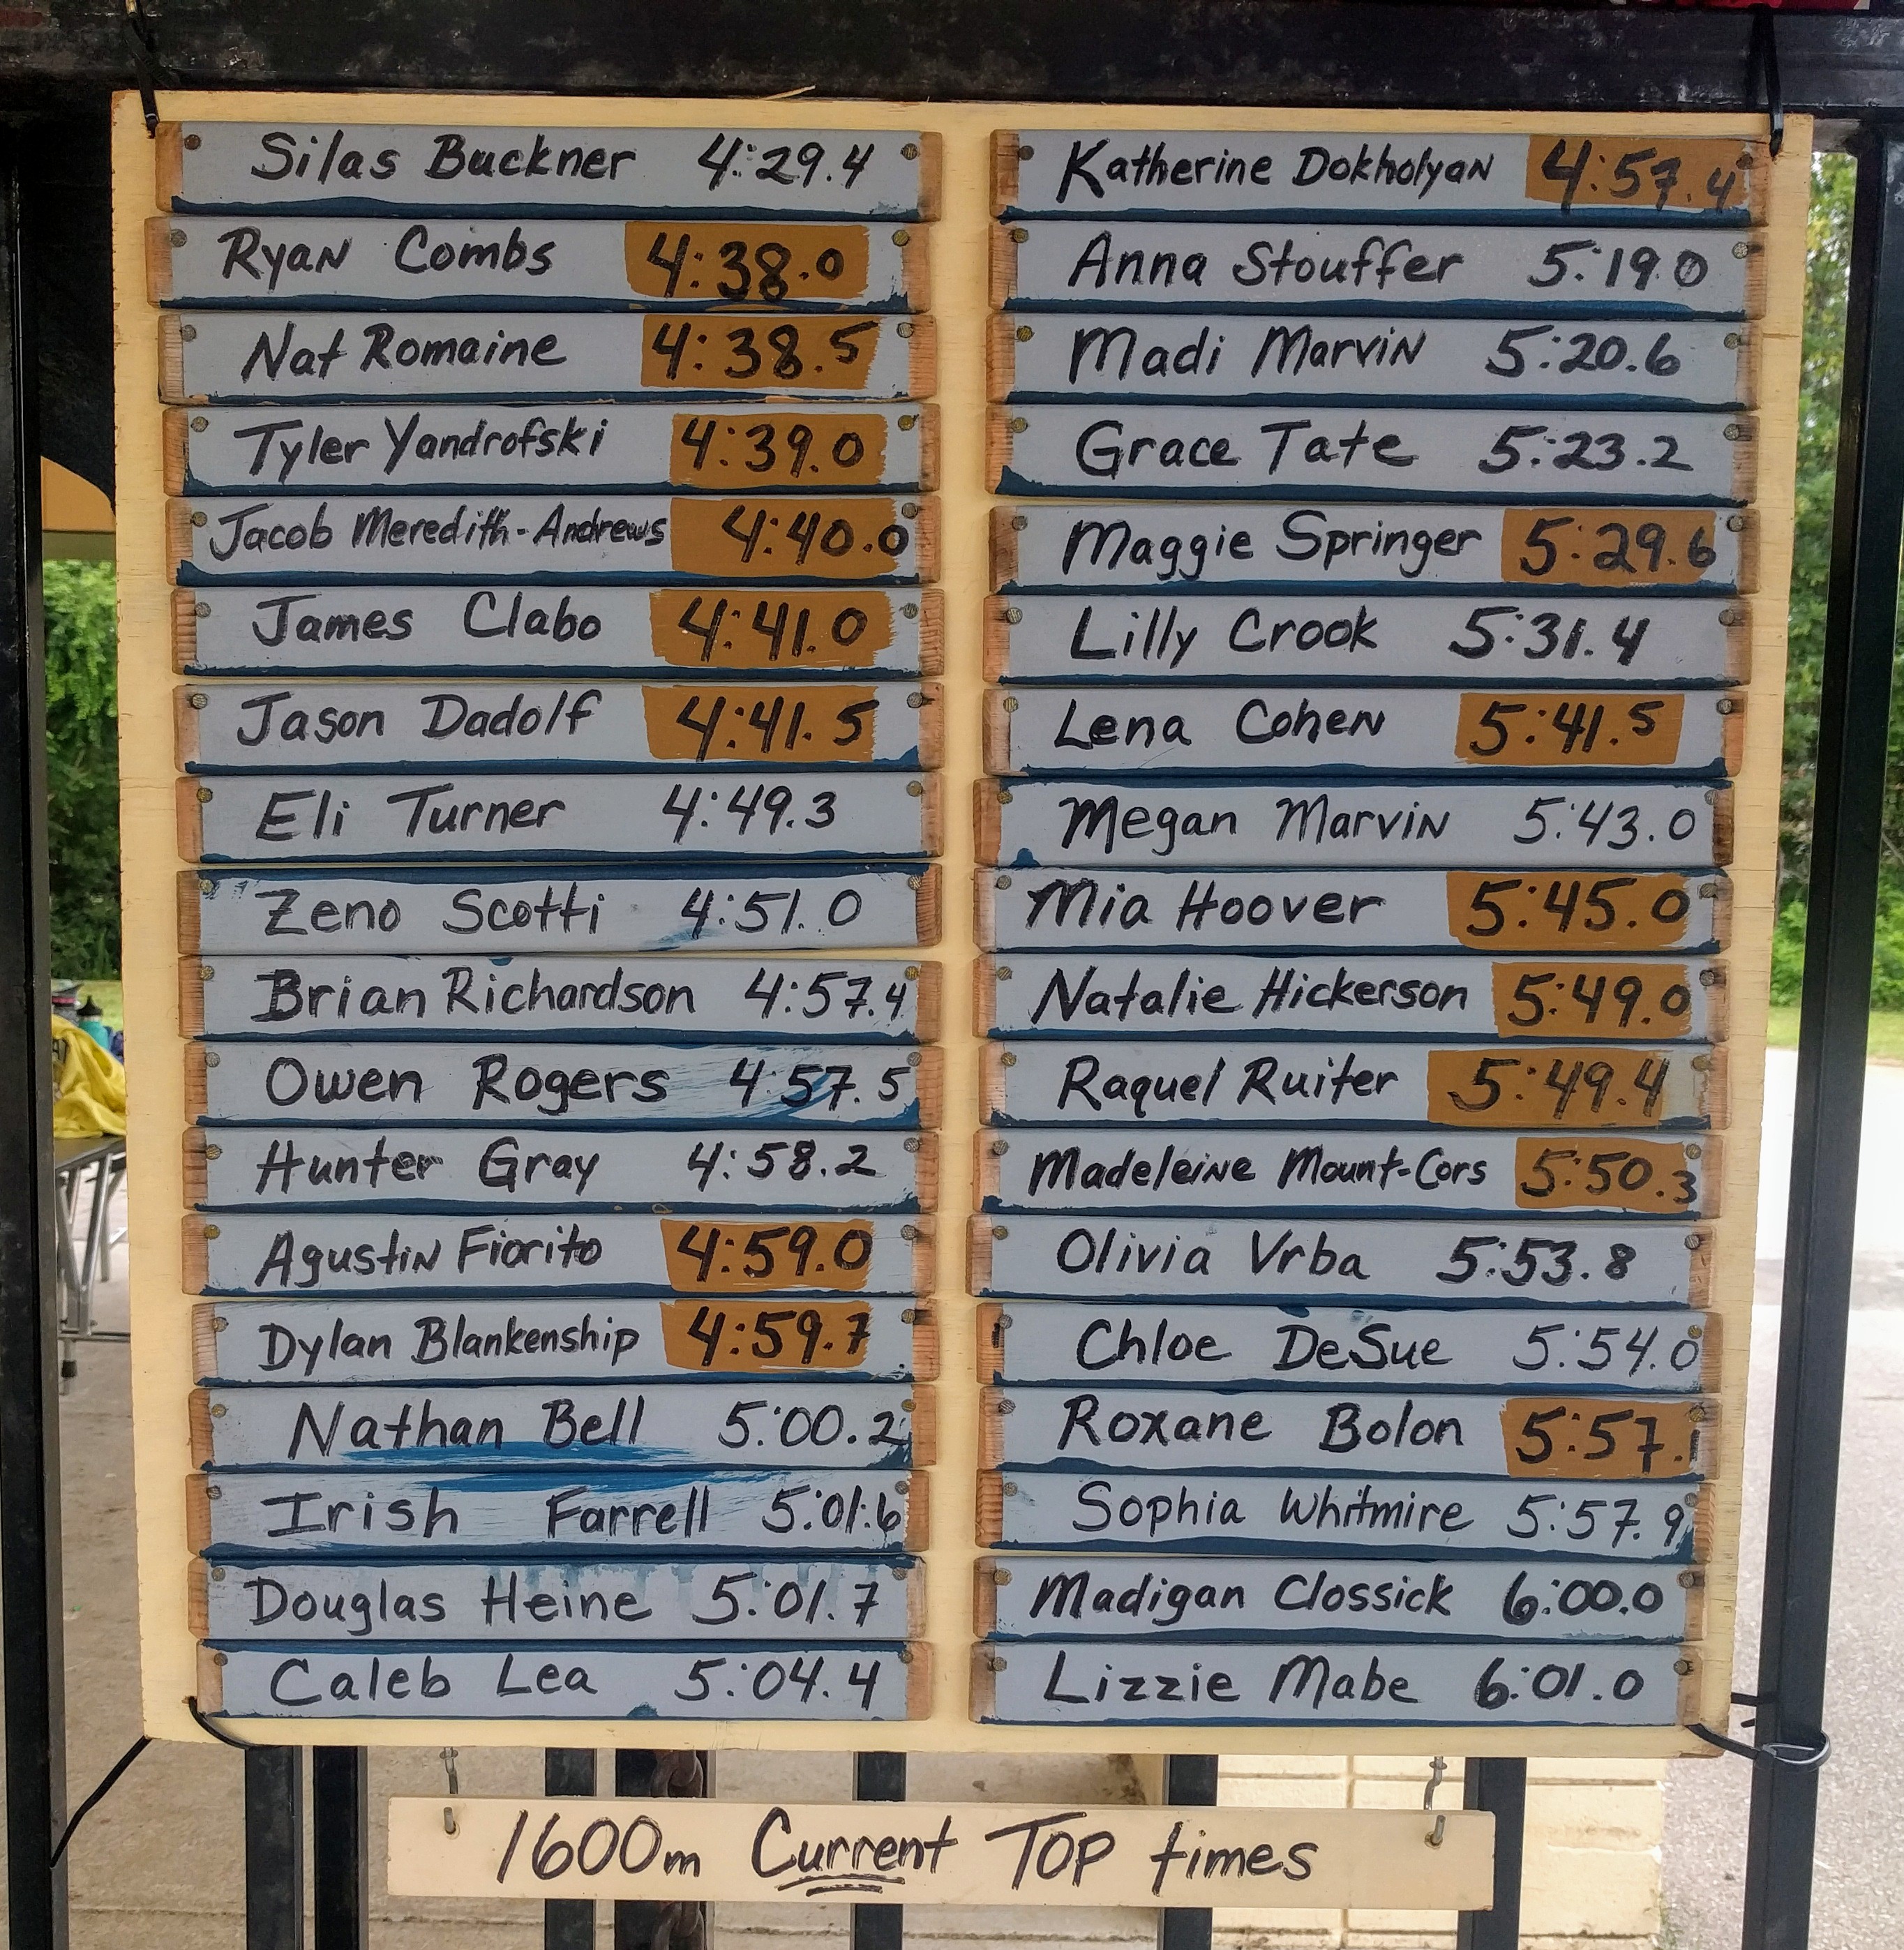 Silas Buckner 4:29.4
Ryan Combs 4:38.0
Nat Romaine 4:38.5
Tyler Yandrofski 4:39.0
Jacob Meredith-Andrews 4:40.0
James Clabo 4:41.0
Jason Dadolf 4:41.5
Eli Turner 4:49.3
Zeno Scotti 4:51.0
Brian Richardson 4:57.4
Owen Rogers 4:57.5
Hunter Gray 4:58.2
Agustin Fiorito 4:59.0
Dylan Blankenship 4:59.7
Nathan Bell 5:00.2
Irish Farrell 5:01.6
Douglas Heine 5:01.7
Caleb Lea 5:04.4
Katherine Dokholyan 4:57.4
Anna Stouffer 5:19.0
Madi Marvin 5:20.6
Grace Tate 5:23.2
Maggie Springer 5:29.6
Lilly Crook 5:31.4
Lena Cohen 5:41.5
Megan Marvin 5:43.0
Mia Hoover 5:45.0
Natalie Hickerson 5:49.0
Raquel Ruiter 5:49.4
Madeleine Mount-Cors 5:50.3
Olivia Vrba 5:53.8
Chloe DeSue 5:54.0
Roxane Bolon 5:57.1
Sophia Whitmire 5:57.9
Madigan Clossick 6:00.0
Lizzie Mabe 6:01.0
1600m Current TOP times